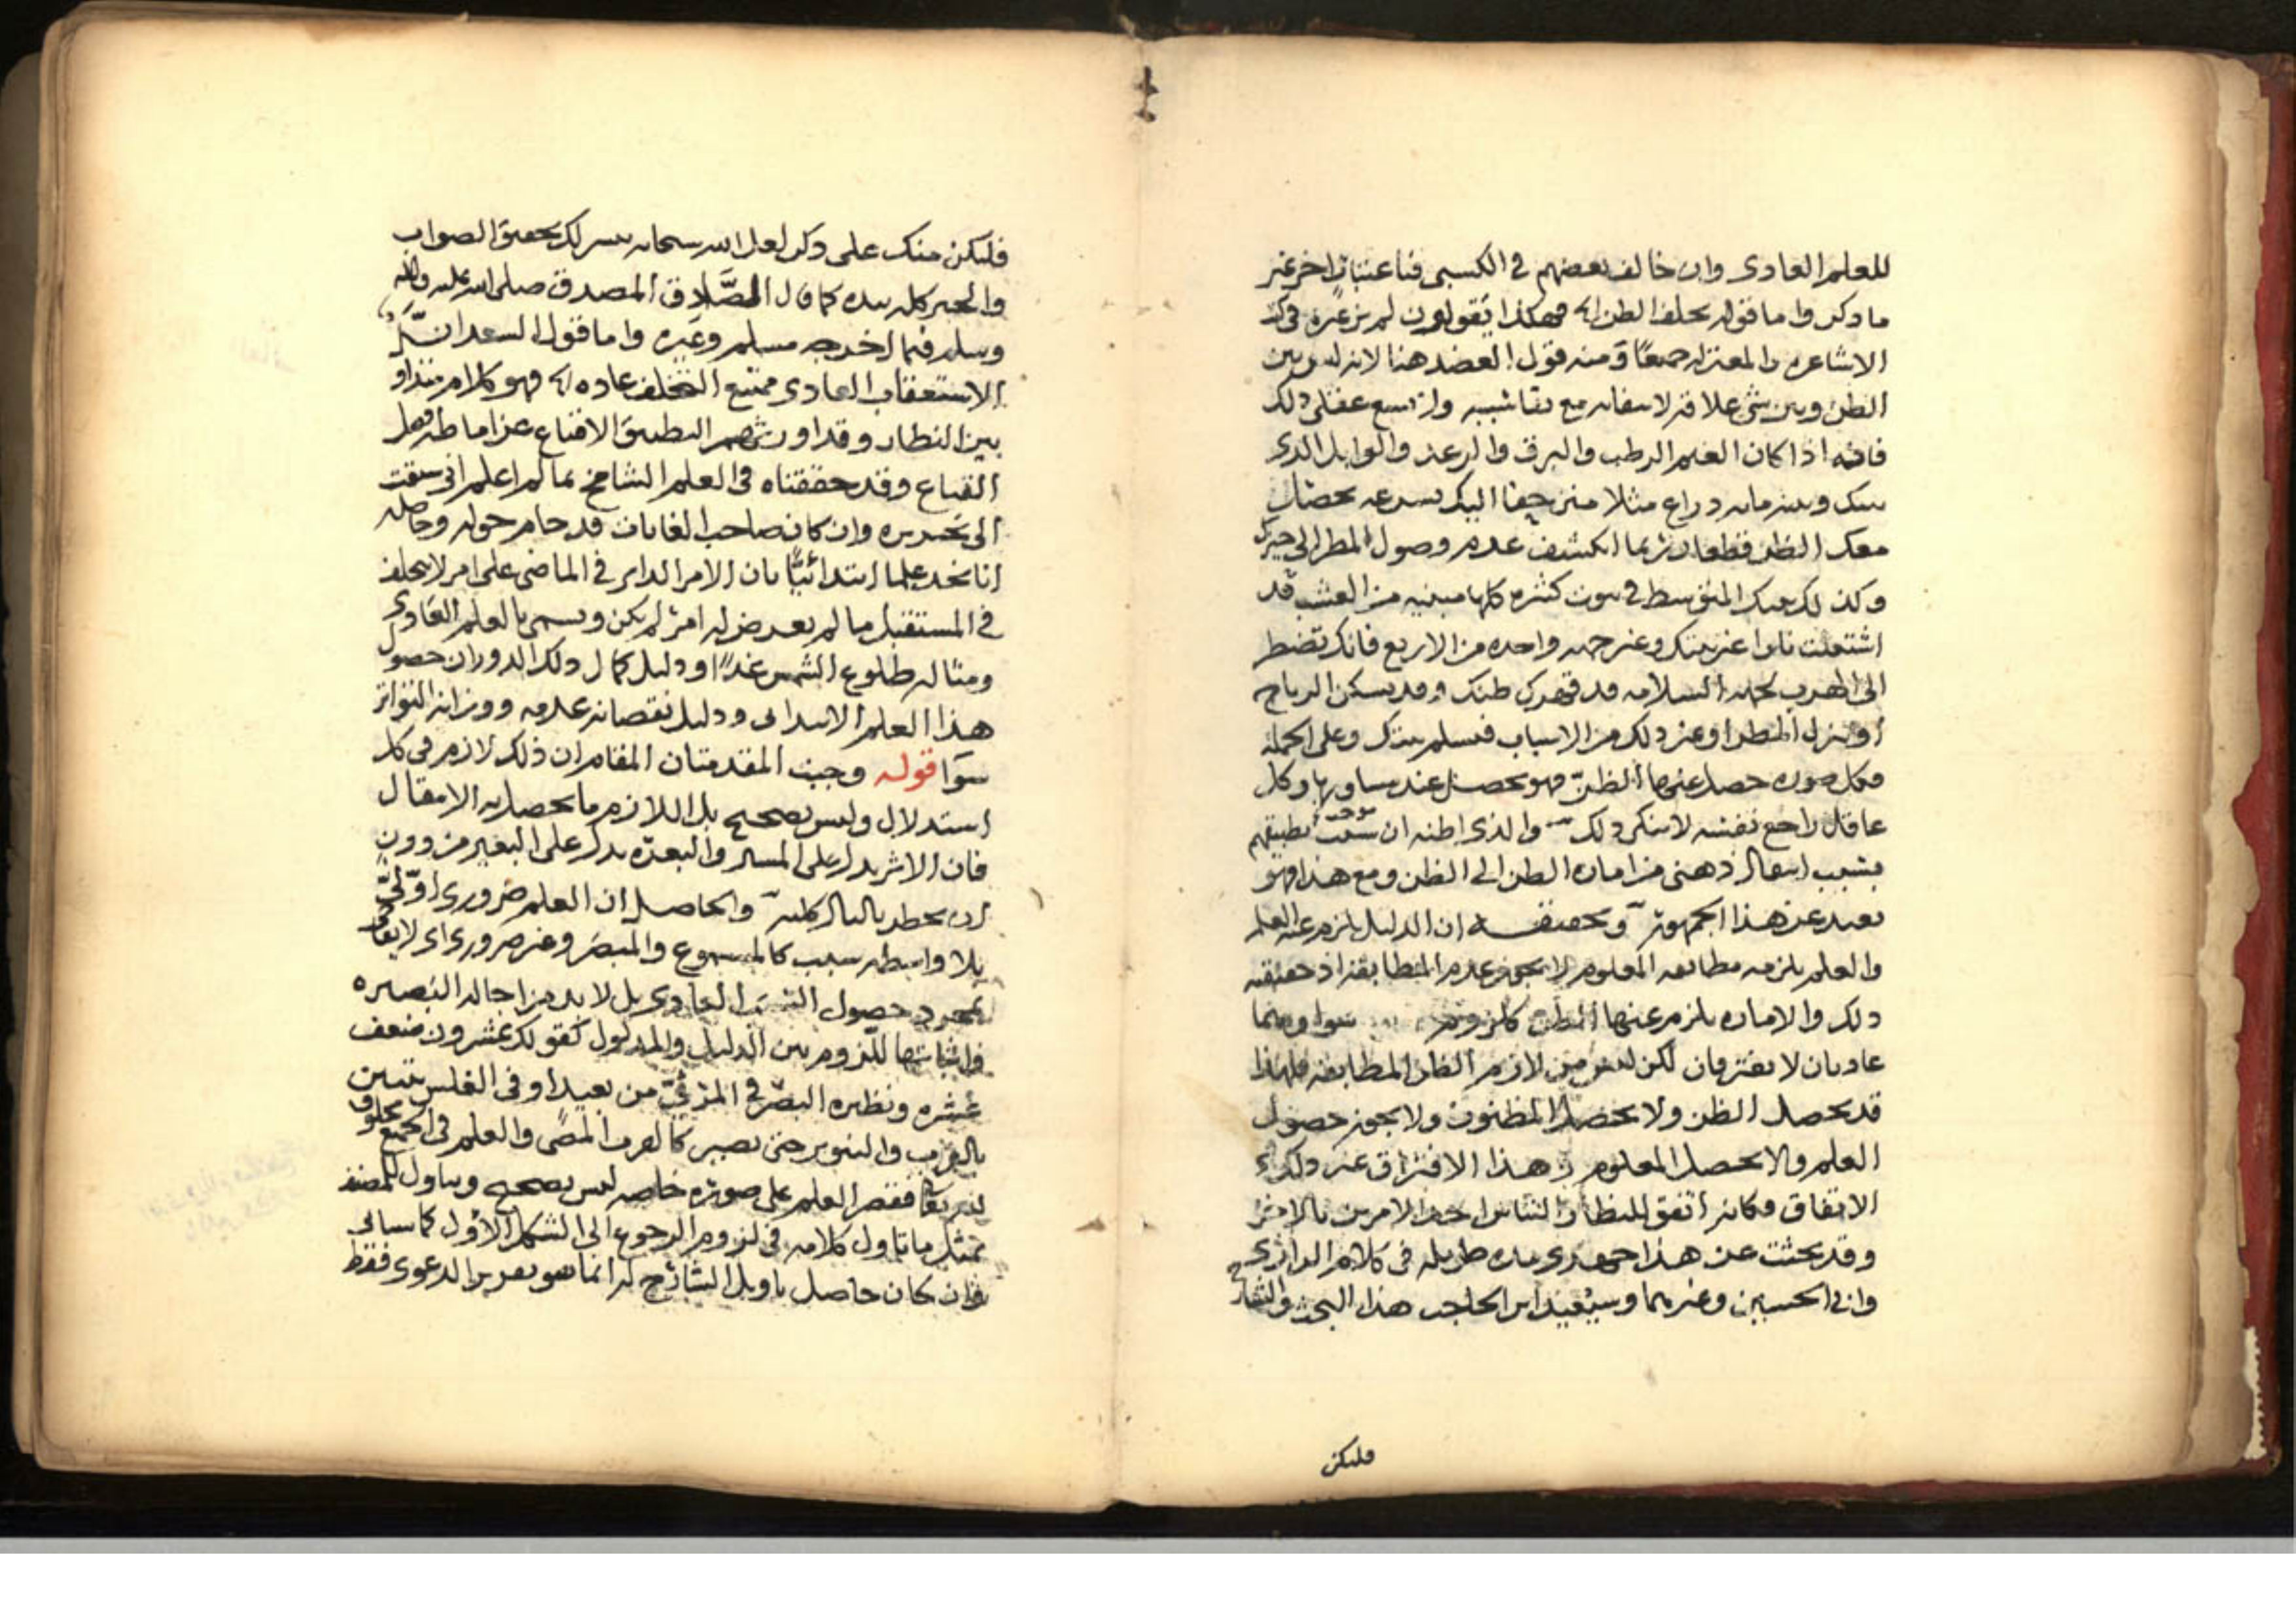 للعلم العادى وان خالف بعضهم فى الكسبى فباعتبار اخر غير
ما ذكر واما قوله يحلف الظن الخ فهكذا يقولون لم نر غيره فى كتب
الاشاعرة والمعتزلة جميعًا ومنه قول العضد هنا لانه ليس بين
الظن وبين شى علاقة لانتفائه مع بقا سببه
فانه اذا كان الغيم الرطب والبرق والرعد والوابل الذى
بينك وبينه مايه دراع مثلا منزحفا اليك بسرعه يحصل
معك الظن قطعا وربما انكشف عدم وصول المطر الى حيزك
وكذلك بيتك المتوسط فى بيوت كثيره كلها مبنيه من العشب قد
اشتعلت نارا عن بيتك وعن جهه واحده من الاربع فانك تضطر
الى الهرب لجهة السلامه قد قهرك ظنك وقد يسكن الرياح
او ينزل المطر او غير ذلك من الاسباب فيسلم بيتك وعلى الجمله
فكل صوره حصل عنها الظن فهو يحصل عند مساويها وكل
عاقل راجع نفسه لا ينكر ذلك والذى اظنه ان تطبيقهم
بسبب انتقال ذهنى من اماره الظن الى الظن ومع هذا فهو
بعيد عن هذا الجمهور وتحقيقه ان الدليل يلزم عنه العلم
والعلم يلزمه مطابقه المعلوم لا يجوز عدم المطابقة اذ حقيقته
ذلك والاماره يلزم عنها الظن سوا وهما
عاديان لا يفترقان لكن ليس من لازم الظن المطابقه فلهذا
قد يحصل الظن ولا يحصل المظنون ولا يجوز حصول
العلم ولا يحصل المعلوم هذا الافتراق عند ذلك
الاتفاق فكانه اتفق للنظار التباس احد الامرين بالاخر
وقد بحثت عن هذا جهدى مده طويله فى كلام الرازى
وابى الحسين وغيرهما وسيفيد ابن الحاجب هذا البحث والشارح
فليكن
فليكن منك على ذكر لعل الله سبحانه ييسر لك تحقيق الصواب
والخير كله بيده كما قال الصادق المصدق صلى الله عليه واله
وسلم فيما اخرجه مسلم وغيره واما قول السعد ان
الاستعقاب العادى ممتنع التخلف عاده الخ فهو كلام متداول
بين النظار وقد اورثهم التطبيق الاقناع عن اماطه
القناع وقد حققناه فى العلم الشامخ بما لم اعلم انى سبقت
الى تحريره وان كان صاحب الغايات قد حام حوله وحاصله
انا نجد علما ابتدائيًا بان الامر الداير فى الماضى على امر لا يخلف
فى المستقبل ما لم يعرض له امر لم يكن ويسمى بالعلم العادى
ومثاله طلوع الشمس غدًا ودليل كمال ذلك الدوران حصول
هذا العلم الابتدائى ودليل نقصانه عدمه ووزانه التواتر
سوا قوله وجبت المقدمتان المقام ان ذلك لازم فى كل
استدلال وليس بصحيح بل اللازم ما يحصل به الانتقال
فان الاثر يدل على المسير والبعرة يدل على البعير من دون
ان يخطر بالبال كليه والحاصل ان العلم ضرورى اولىّ
بلا واسطه سبب كالمسموع والمبصر وغير ضرورى اى لا
بمجرد حصول السبب العادى بل لا بد من اجاله البصيره
واثباتها للزوم بين الدليل والمدلول كقولك عشرون ضعف
عشره ونظيره البصر فى المرئىّ من بعيد او فى الغلس يتبين
بالقرب والتنوير حتى يصير كالقريب المضى والعلم فى الجميع مخلوق
فقصر العلم على صورة خاصه ليس بصحيح ويتاول للمصنف
بمثل ما تاول كلامه فى لزوم الرجوع الى الشكل الاول كما سياتى
وان كان حاصل تاويل الشارح له انما هو تقرير الدعوى فقط